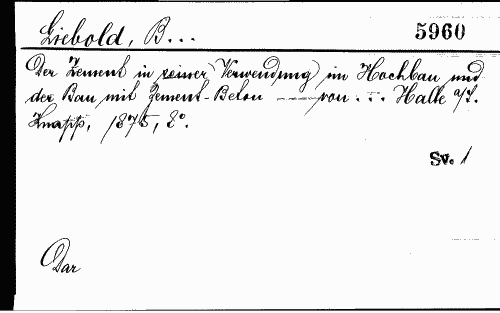 Liebold, B... 5960
Der Zement in seiner Verwendung im Hochbau und
der Bau mit Zement-Beton — von ... Halle a/S.
Knapp, 1875, 8°.
Sv. 1
Dar